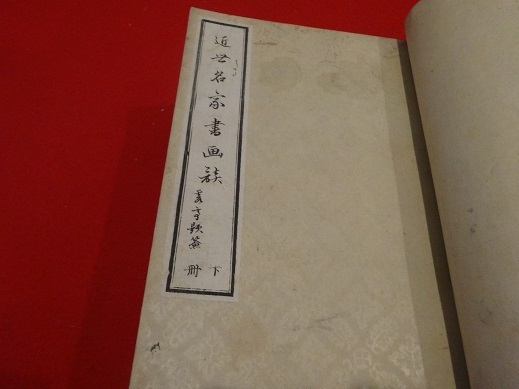 近世名家書画談
題簽
下
冊